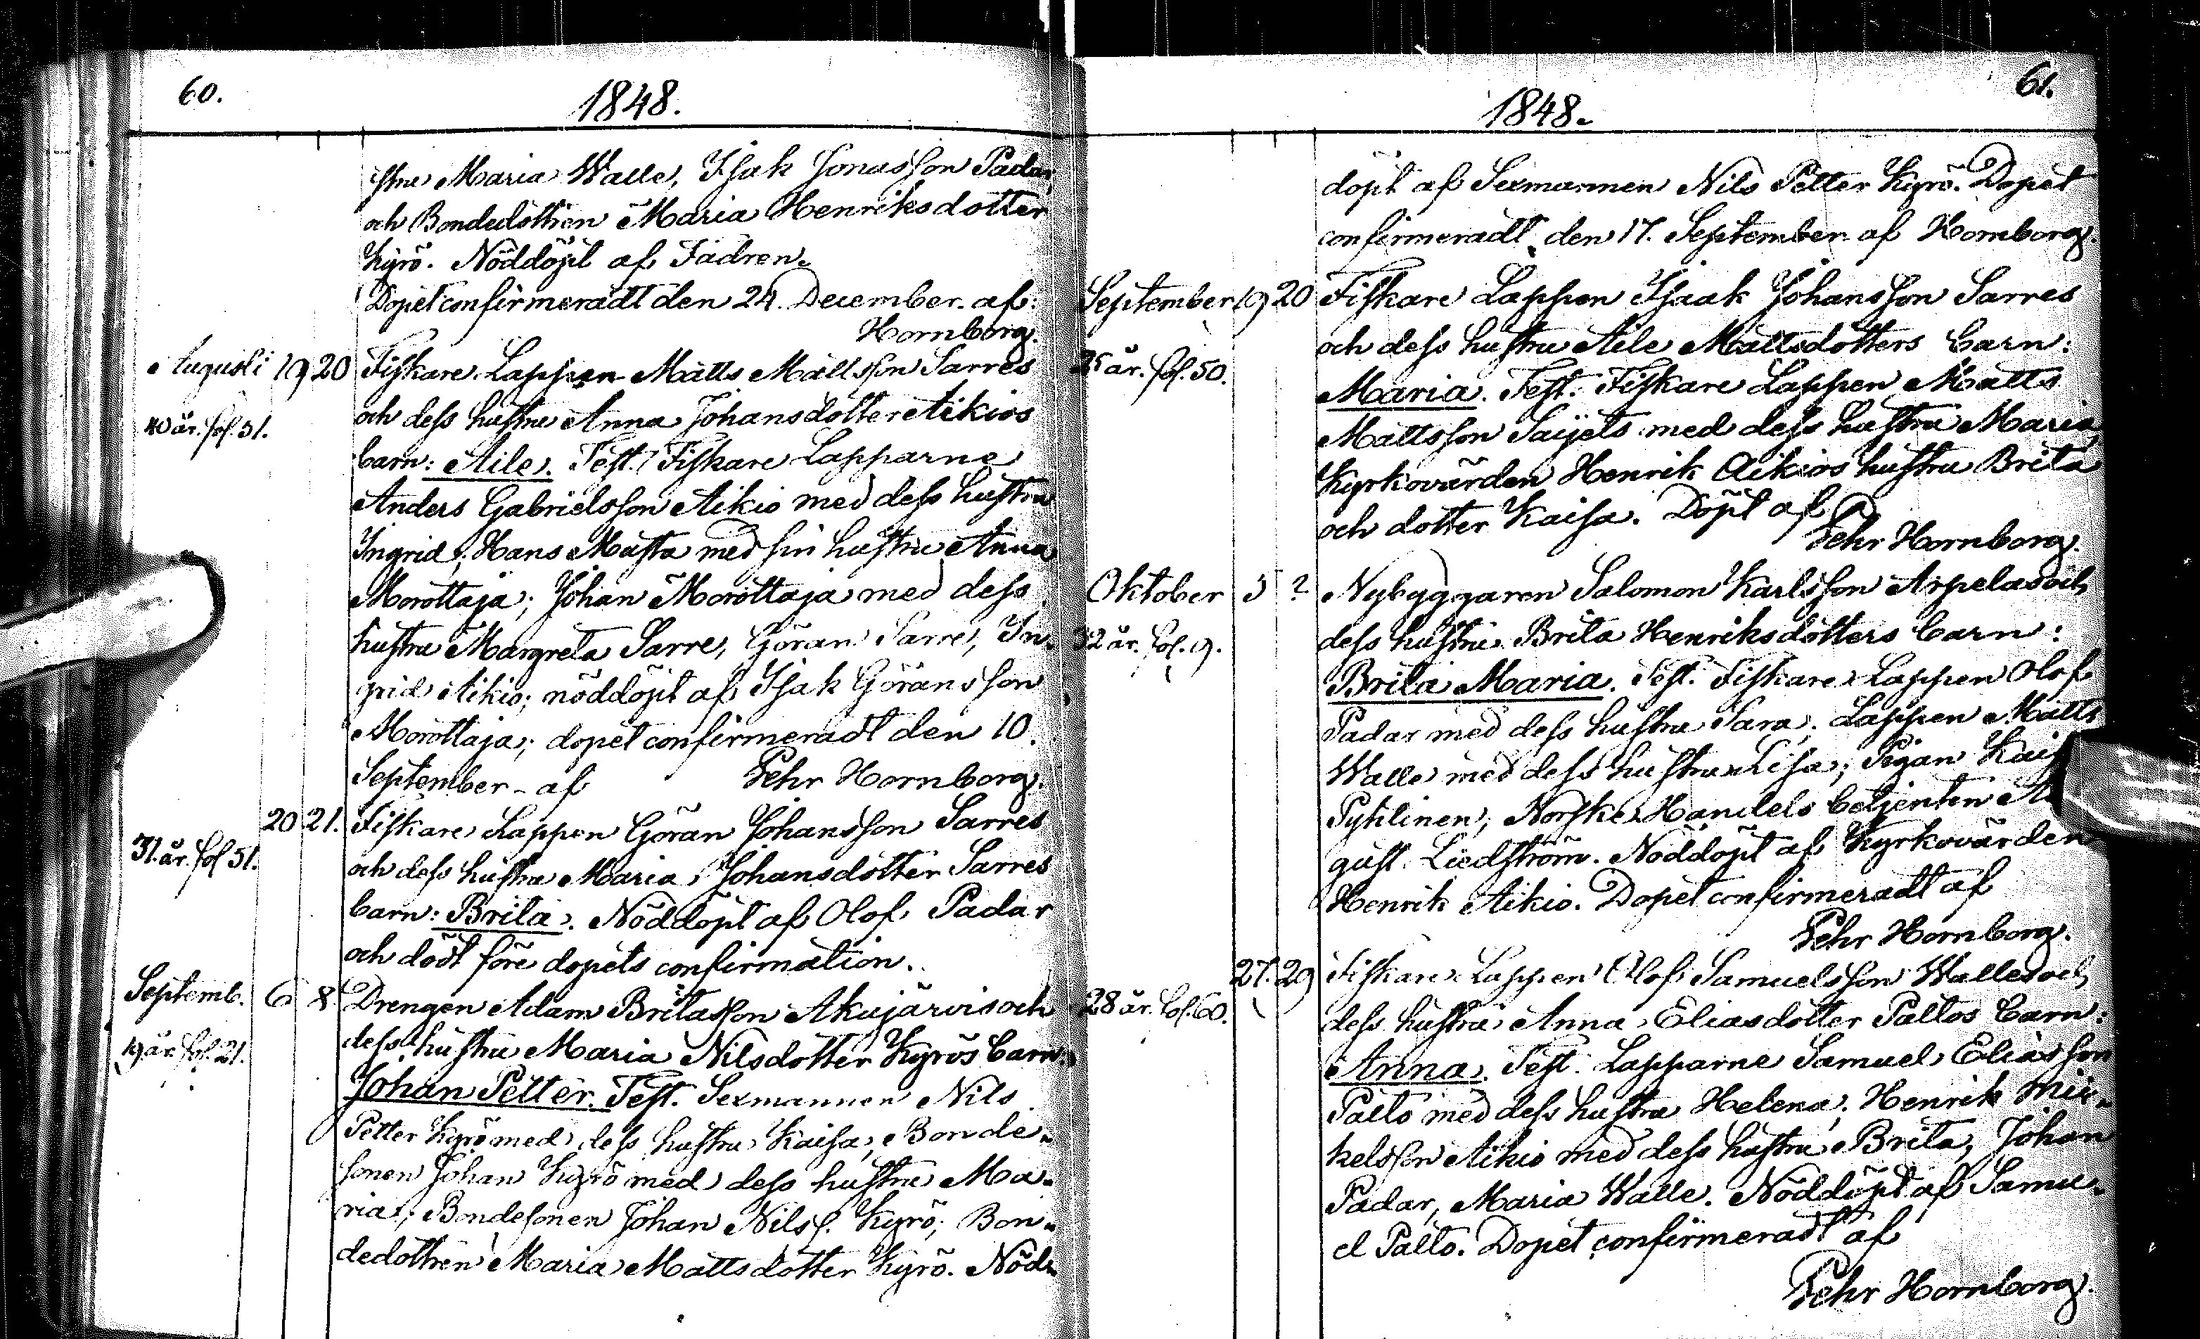 60.
1848.
stru Maria Walle, Isak Jonasson Padar,
och Bondedottren Maria Henriksdotter
Kyrö. Nöddöpt af Fadren.
Dopet confirmeradt den 24. December af:
Hornborg.
Augusti 19 20 Fiskare Lappen Matts Mattsson Sarres
och dess hustru Anna Johansdotter Aikios
40 år. fol. 51.
barn: Aile. Test. Fiskare Lapparne
Anders Gabrielsson Aikio med dess hustru
Ingrid; Hans Musta med sin hustru Anna
Morottaja; Johan Morottaja med dess
hustru Margreta Sarre, Göran Sarre, In-
grid Aikio; nöddöpt af Isak Göransson
Morottaja; dopet confirmeradt den 10.
September af Pehr Hornborg.
20 21. Fiskare Lappen Göran Johansson Sarres
31. år. fol 51.
och dess hustru Maria Johansdotter Sarres
barn: Brita. Nöddöpt af Olof Padar
och dödt före dopets confirmation.
Septemb. 6 8 Drengen Adam Britasson Akujärvis och
19 år. fol. 21.
dess hustru Maria Nilsdotter Kyrös barn
Johan Petter. Test. Sexmannen Nils
Petter Kyrö med dess hustru Kaisa, Bonde-
sonen Johan Kyrö med dess hustru Ma-
ria; Bondesonen Johan Nilss. Kyrö; Bon-
dedottren Maria Mattsdotter Kyrö. Nöd-
61.
1848.
döpt af Sexmannen Nils Petter Kyrö. Dopet
confirmeradt den 17. September af Hornborg.
September 19 20 Fiskare Lappen Isaak Johansson Sarres
och dess hustru Aile Mattsdotters barn:
25 år. fol. 50.
Maria. Test. Fiskare Lappen Matts
Mattsson Saijets med dess hustru Maria,
Kyrkovärden Henrik Aikios hustru Brita
och dotter Kaisa. Döpt af
Pehr Hornborg.
Oktober 5 ? Nybyggaren Salomon Karlsson Arpelas och
32 år. fol. 9.
dess hustru Brita Henriksdotters barn:
Brita Maria. Test. Fiskare Lappen Olof
Padar med dess hustru Sara; Lappen Matts
Walle med dess hustru Lisa; Pigan
Pyhlinen; Norske Handels betjenten
gust. Liedström. Nöddöpt af Kyrkovärden
Henrik Aikio. Dopet confirmeradt af
Pehr Hornborg.
27. 29 Fiskare Lappen Olof Samuelsson Walles och
28 år. fol. 60.
dess hustru Anna Eliasdotter Paltos barn:
Anna. Test. Lapparne Samuel Eliasson
Palto med dess hustru Helena; Henrik Mic-
kelsson Aikio med dess hustru Brita, Johan
Padar, Maria Walle. Nöddöpt af Samu-
el Palto. Dopet confirmeradt af
Pehr Hornborg.